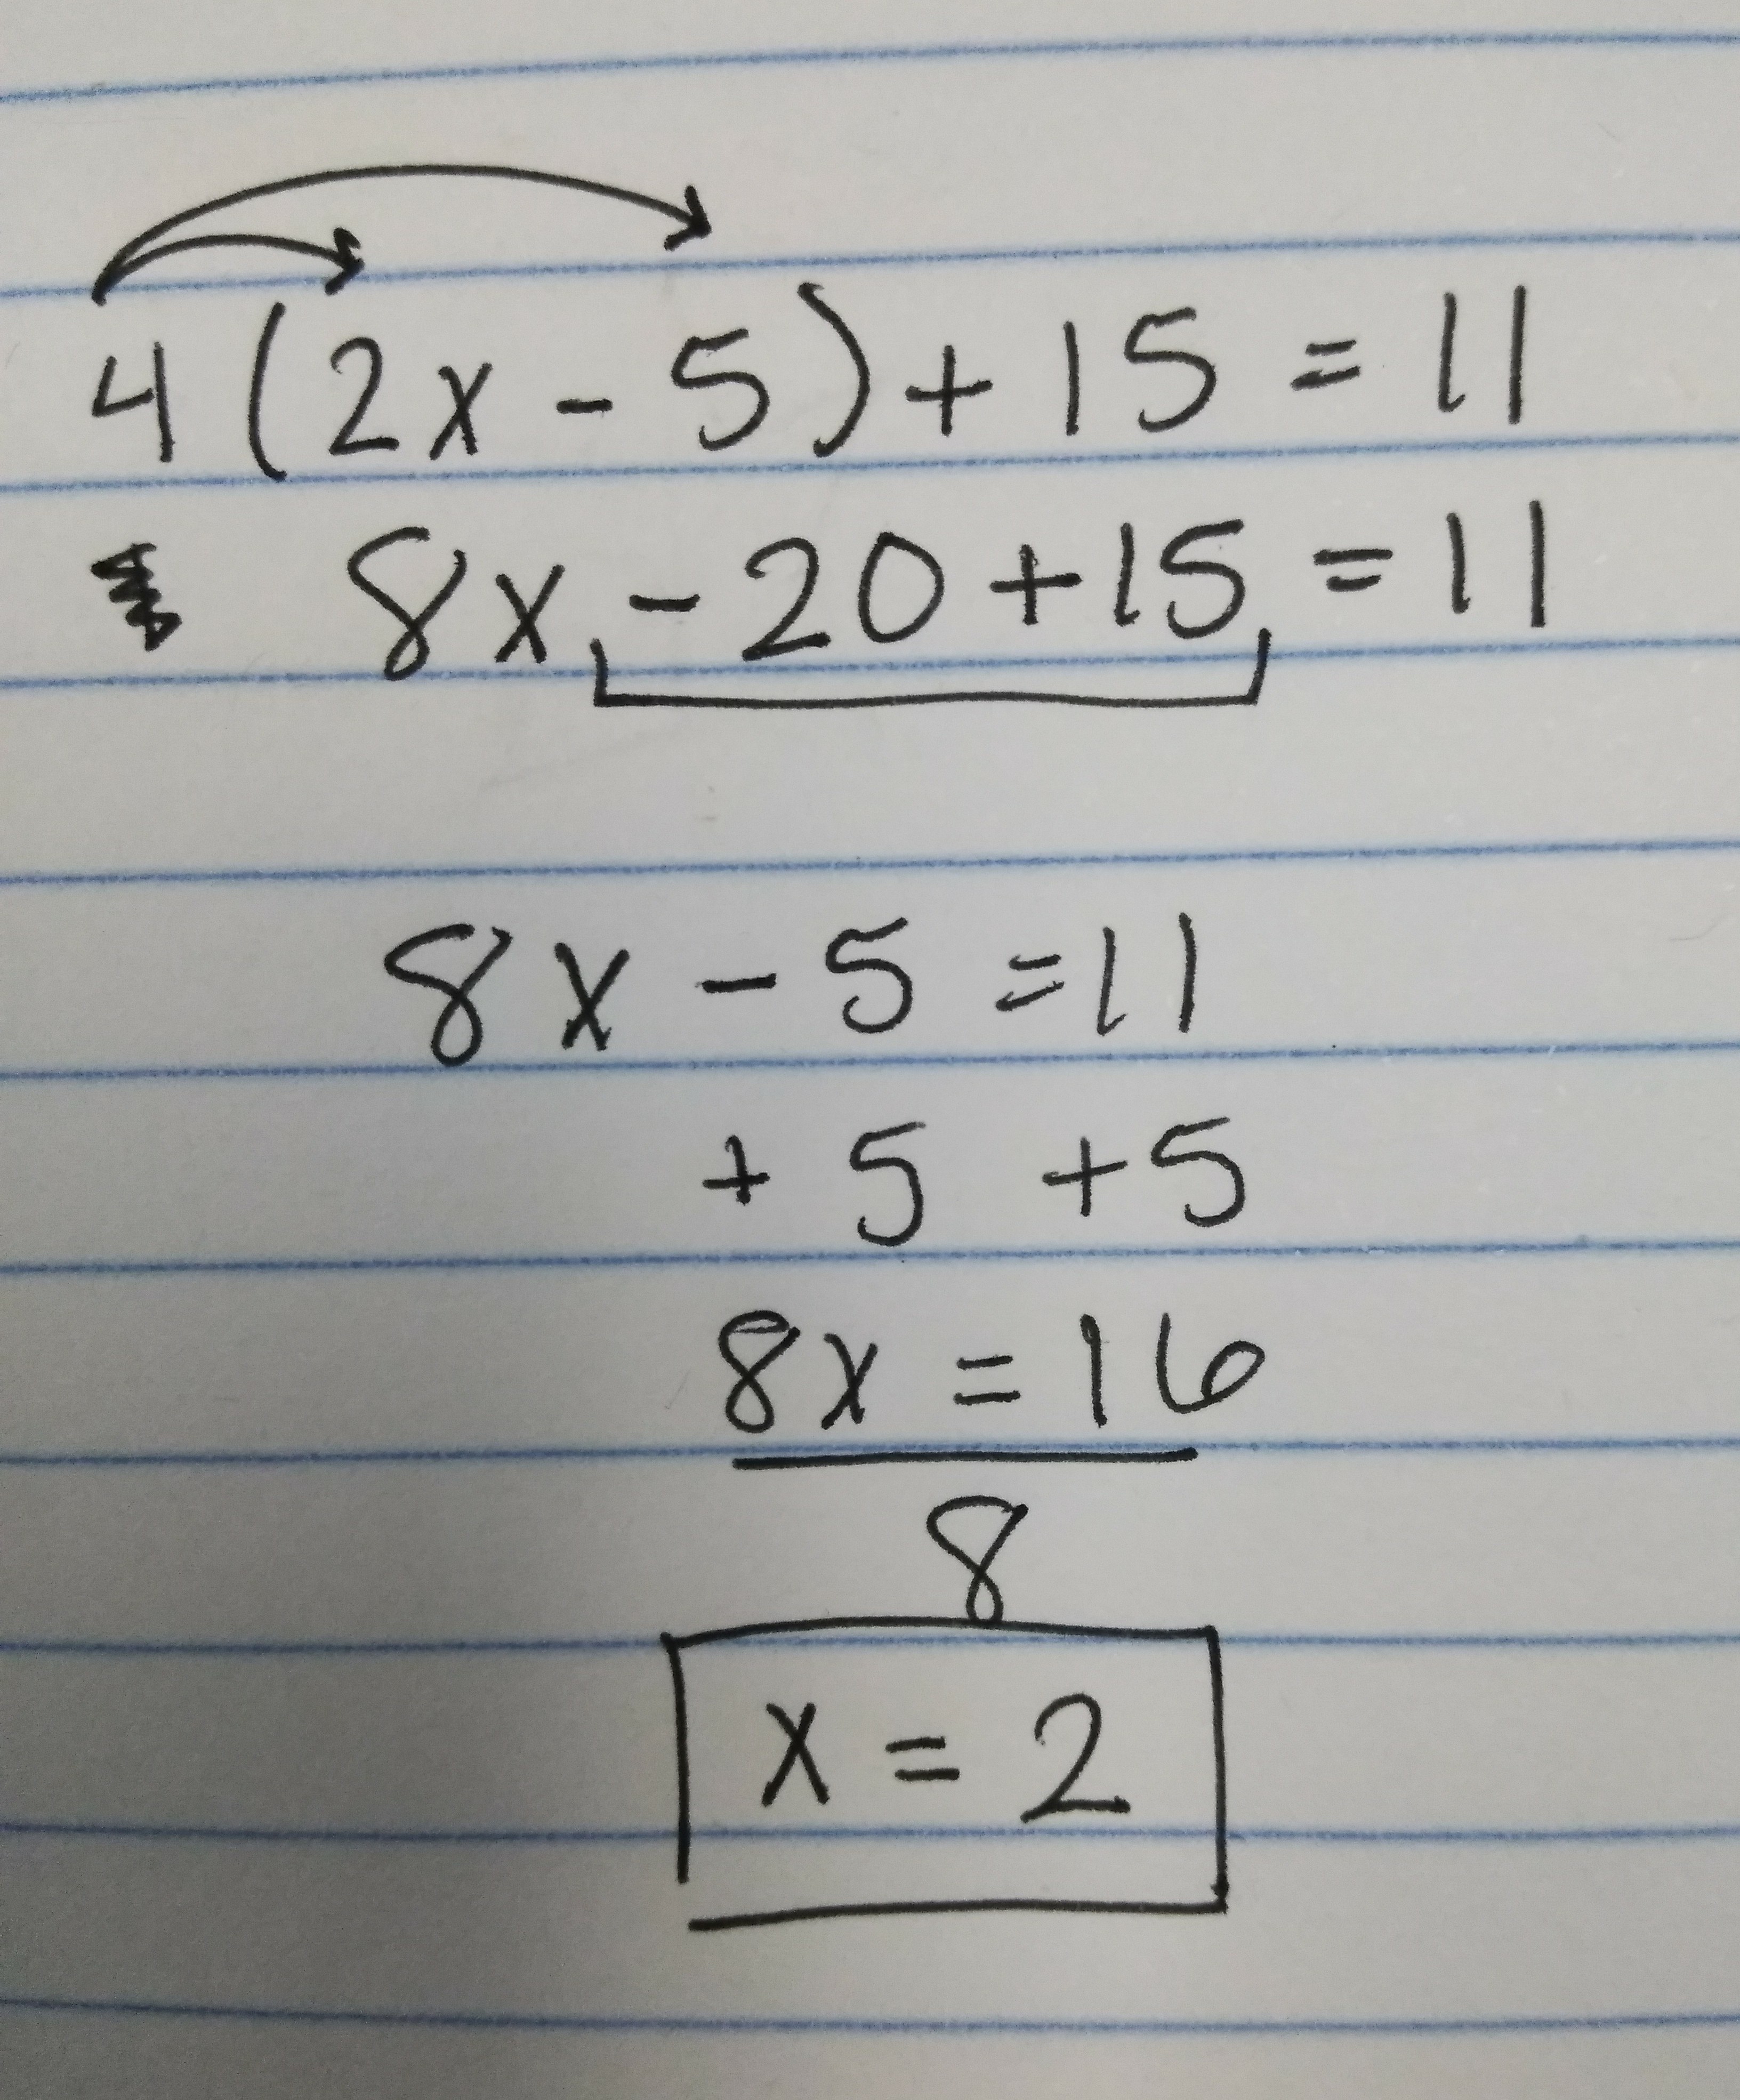 4(2x - 5) + 15 = 11
8x - 20 + 15 = 11
8x - 5 = 11
+ 5 + 5
8x = 16
8
x = 2